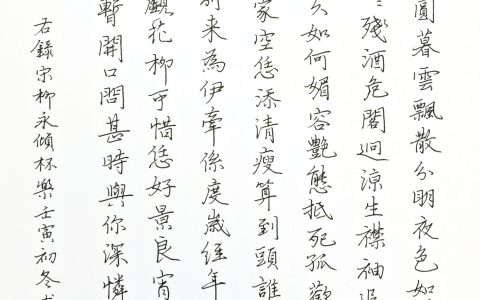 圓暮雲飄散分明夜色如
殘酒危閣迥涼生襟袖追
久如何媚容艷態抵死孤歡
家空恁添清瘦算到頭誰
別來為伊牽係度歲經年
覷花柳可惜恁好景良宵
暫開口問甚時與你深憐
右錄宋柳永傾杯樂壬寅初冬